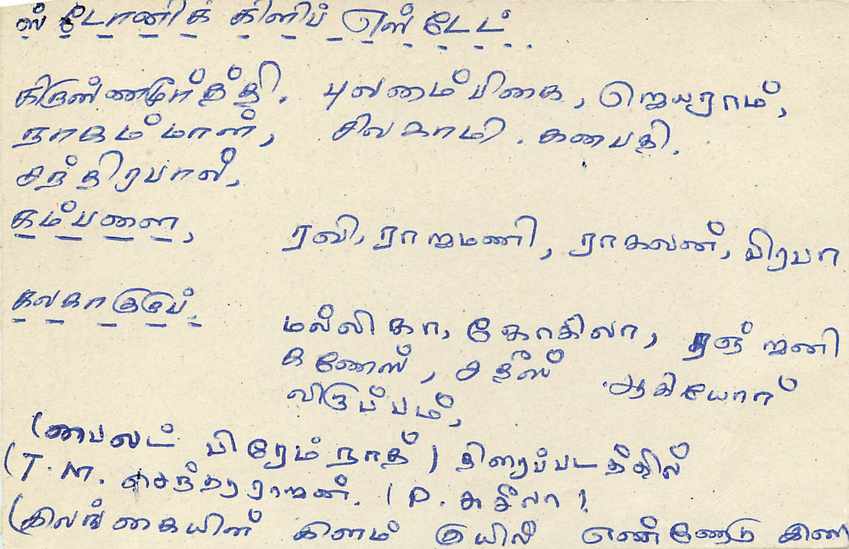 ஸ்டோனிக் கிளிப் எஸ்டேட்
கிருஸ்ணமூர்த்தி, புவனம்பிகை, ஜெயராம்,
நாகம்மாள், சிவகாமி. கணபதி,
சந்திரபாலீ,
கம்பளை,
ரவி, ராஜமணி, ராகவன், பிரபா
கலகா குரூப்,
மல்லிகா, கோகிலா, ரஞ்ஜனி
கணேஸ், சதீஸ் ஆகியோர்
விருப்பம்,
(பைலட் பிரேம்நாத்) திரைப்படத்தில்
(T.M. சௌந்தரராஜன். (P. சுசீலா)
(இலங்கையின் இளம் குயில் என்னோடு